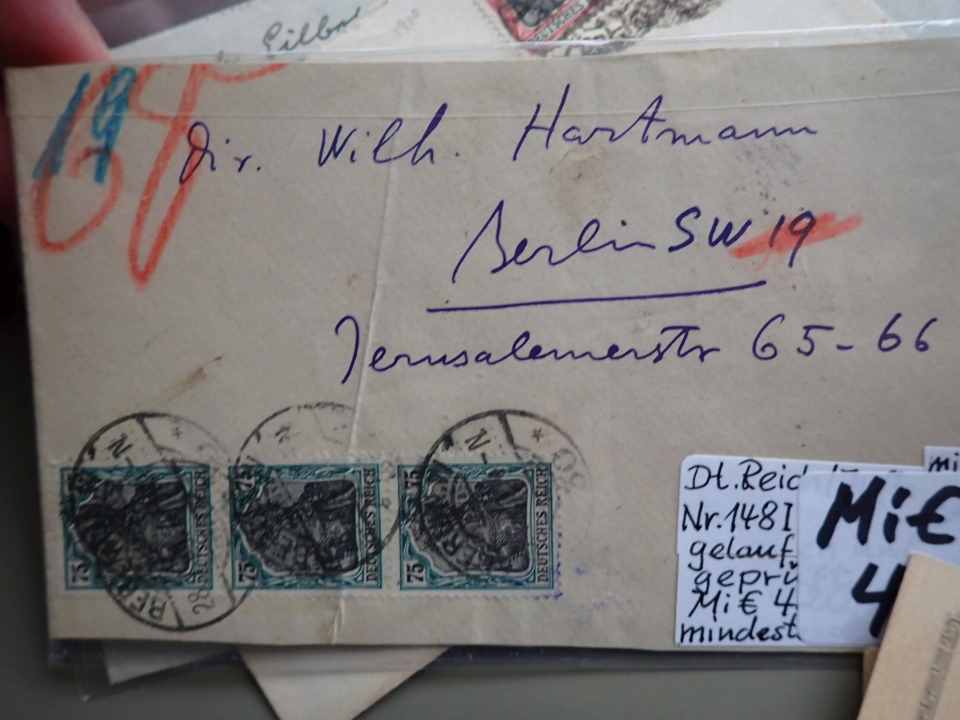 Eilbo
19
Dir. Wilh. Hartmann
Berlin SW 19
Jerusalemerstr 65-66
75 DEUTSCHES REICH
75 DEUTSCHES REICH
75 DEUTSCHES REICH
Dt.Reich
Nr.148I
gelauf
geprü
Mi € 4
mindest
Mi€
4
mi